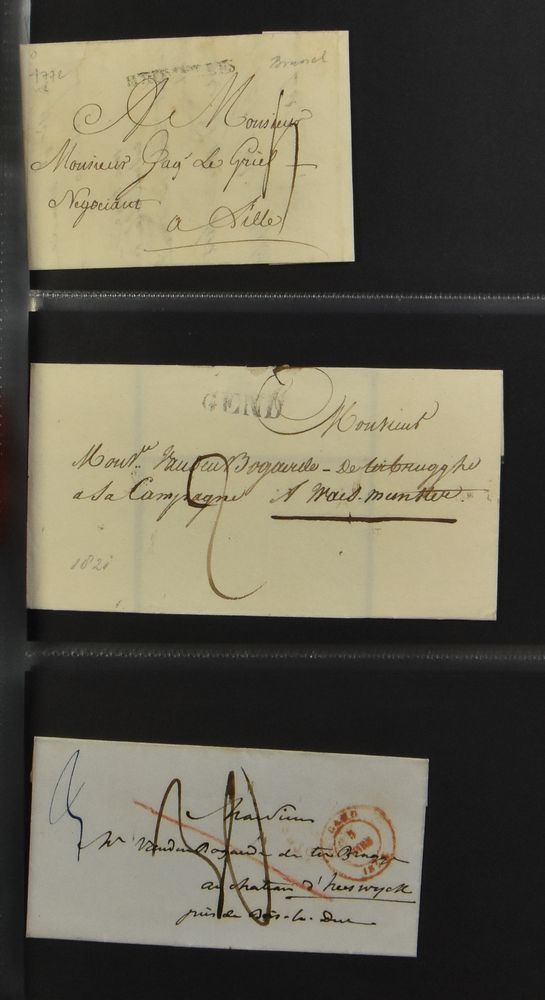 1772
Brussel
BRUXELLES
A Monsieur
Monsieur Jaq' Le Griel
Negociant
a Lille
GEND
Monsieur
Mons.r Vanden Bogaerde - De terbrugghe
a Sa Campagne A Waes-munster
1821
Monsieur
Mr Vanden Bogaerde de ter Brugge
au chateau d'heeswyck
près de Bois-le-Duc
GAND
5